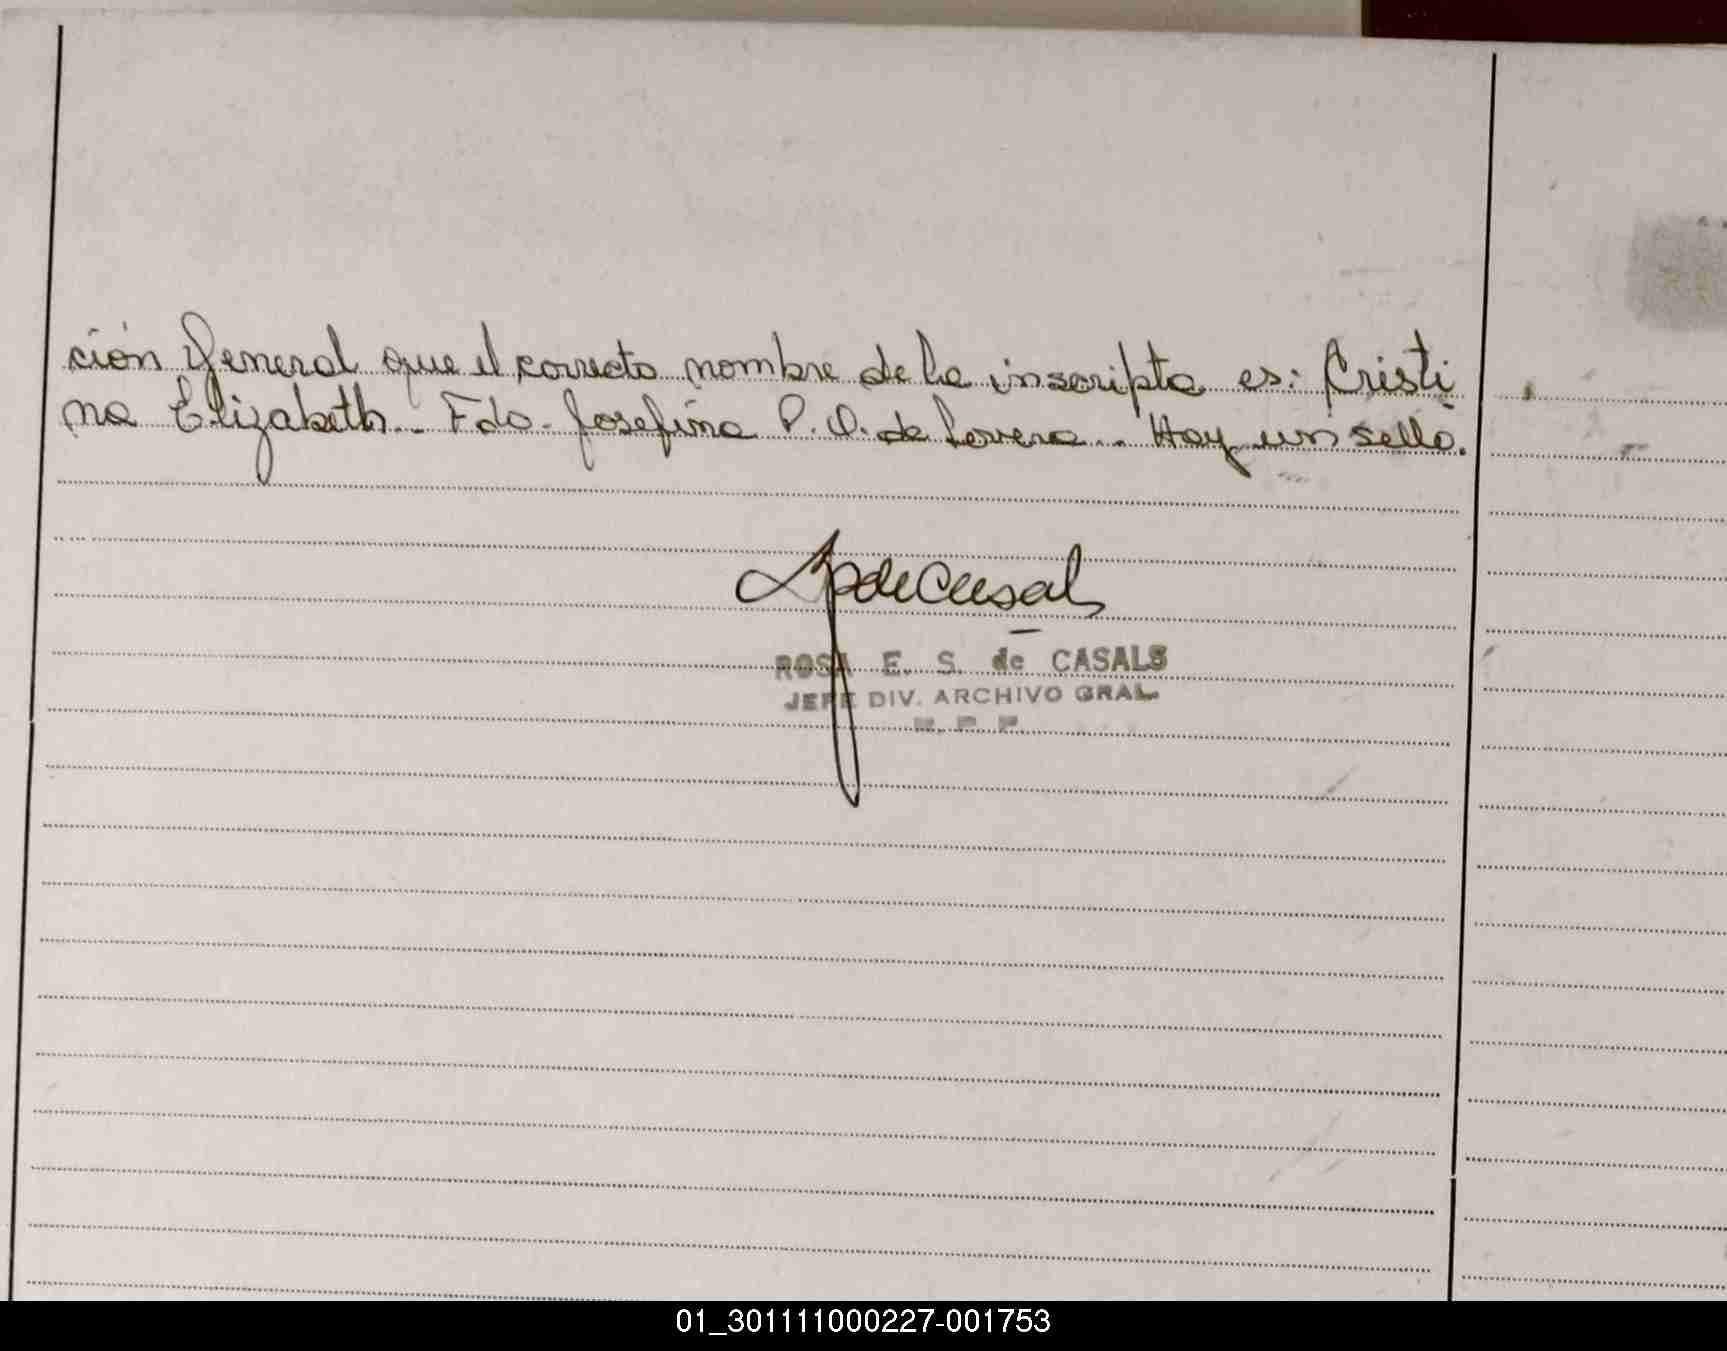 ción General que el correcto nombre de la inscripta es: Cristi
na Elizabeth.- Fdo. Josefina P. O. de Lovera.- Hay un sello.
ROSA E. S. de CASALS
JEFE DIV. ARCHIVO GRAL.
01_301111000227-001753